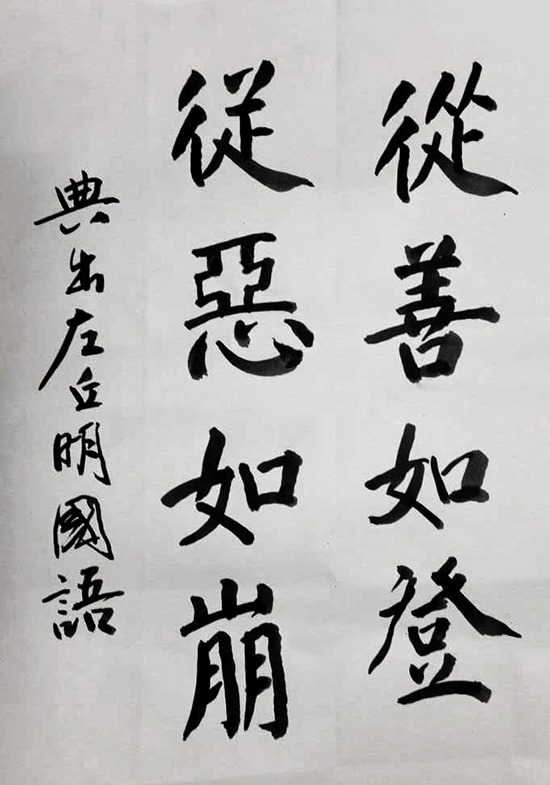 從善如登
従惡如崩
典出左丘明國語